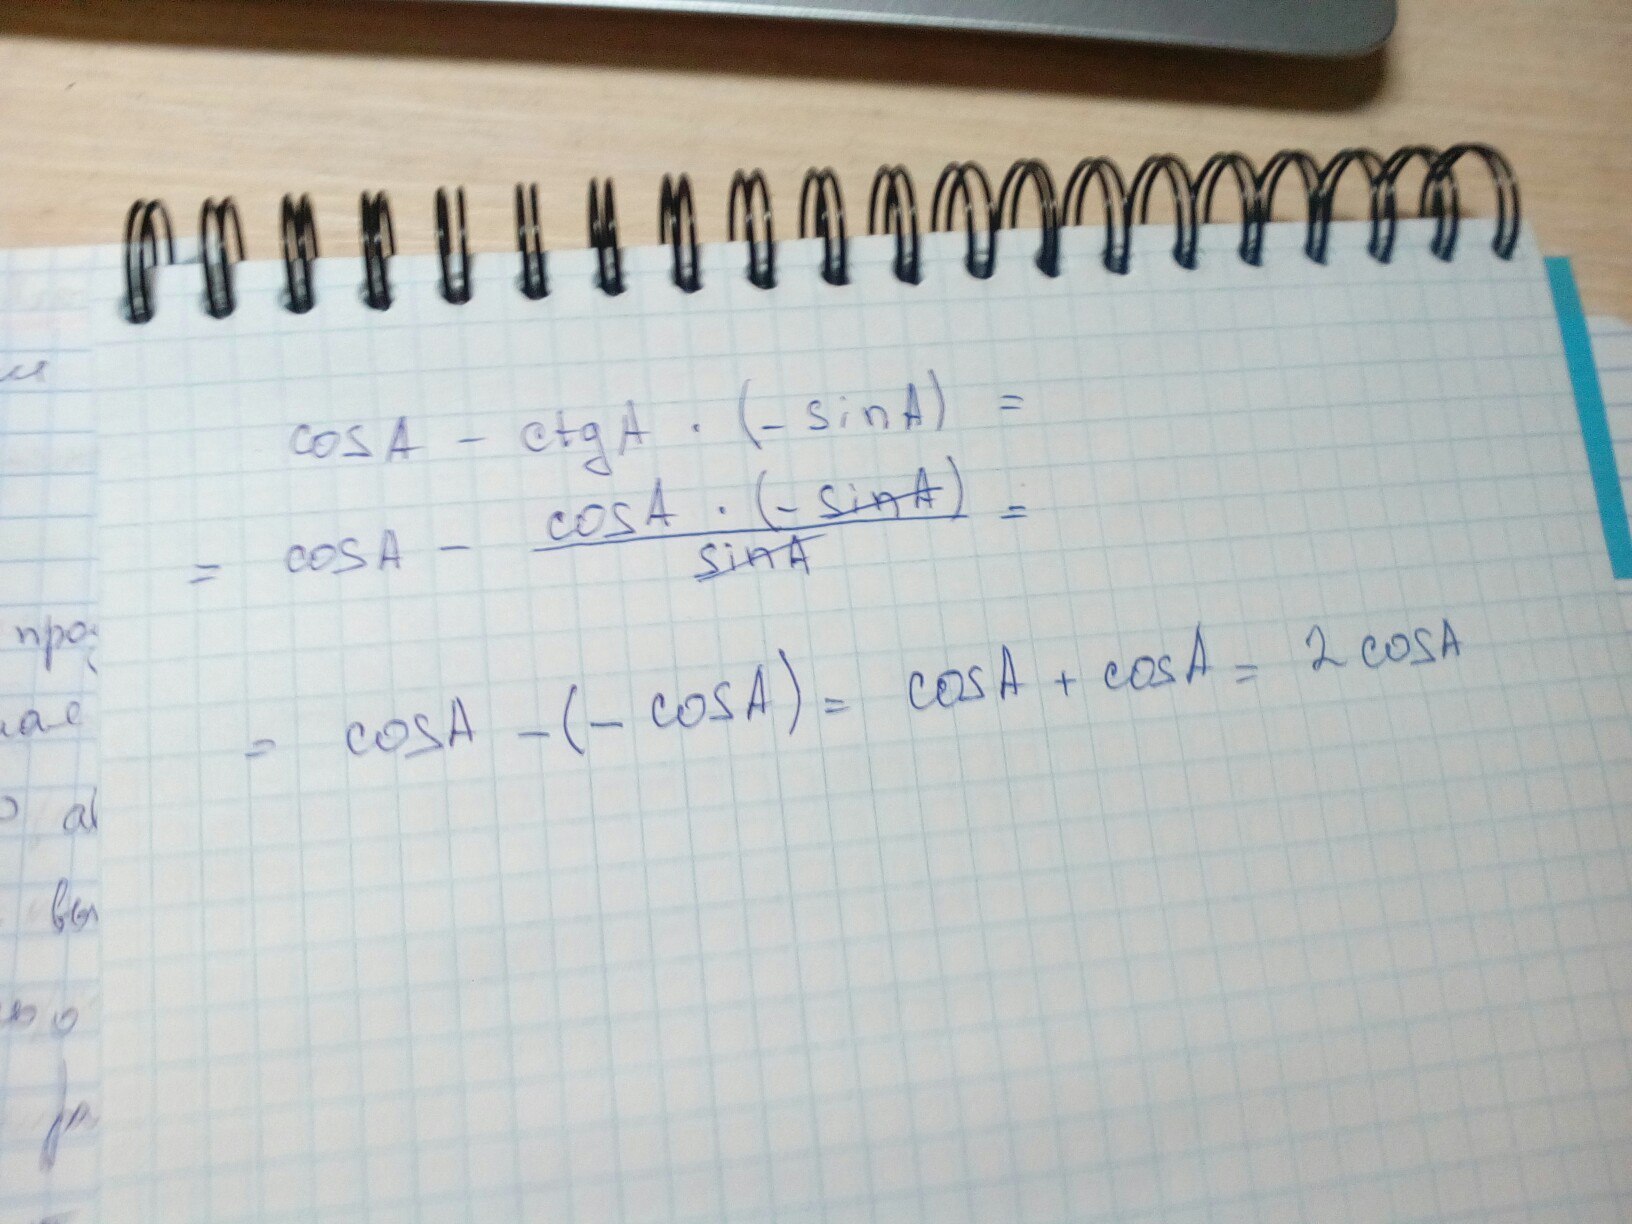 cosA - ctgA · (- sinA) =
= cosA - cosA · (- sinA) / sinA =
= cosA - (- cosA) = cosA + cosA = 2 cosA